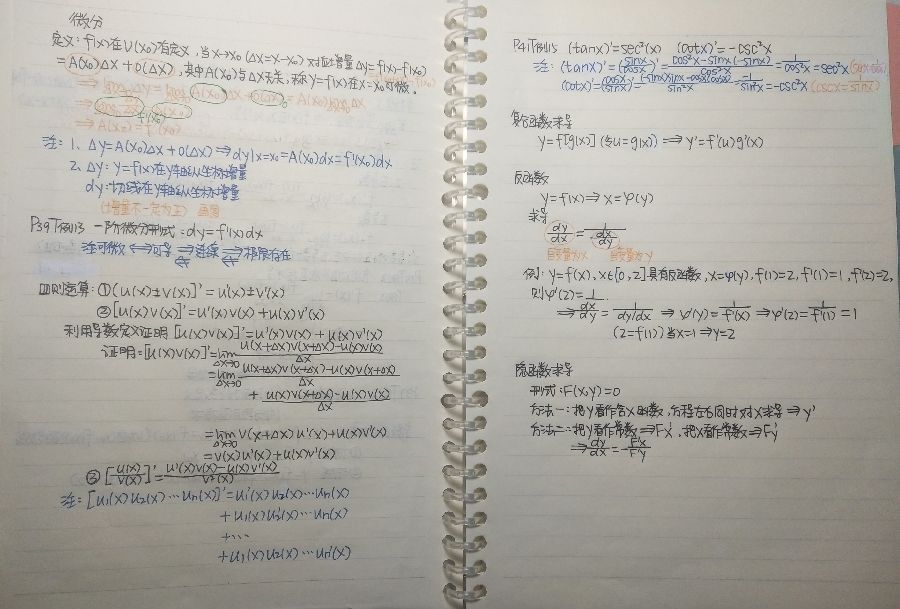 微分
定义:f(x)在U(x₀)有定义,当x→x₀(Δx=x-x₀)对应增量Δy=f(x)-f(x₀)
=A(x₀)Δx+o(Δx),其中A(x₀)与Δx无关,称y=f(x)在x=x₀可微。
⇒A(x₀)=f'(x₀)
注:1、Δy=A(x₀)Δx+o(Δx)⇒dy|x=x₀=A(x₀)dx=f'(x₀)dx
2、Δy:y=f(x)在y轴纵坐标增量
dy:切线在y轴纵坐标增量
(增量不一定为正)画图
P39T例13 一阶微分形式:dy=f'(x)dx
注:可微⇔可导⇒连续⇒极限存在
四则运算:①[u(x)±v(x)]'=u'(x)±v'(x)
②[u(x)v(x)]'=u'(x)v(x)+u(x)v'(x)
利用导数定义证明[u(x)v(x)]'=u'(x)v(x)+u(x)v'(x)
证明:[u(x)v(x)]'=lim Δx→0 u(x+Δx)v(x+Δx)-u(x)v(x)/Δx
=lim Δx→0 u(x+Δx)v(x+Δx)-u(x)v(x+Δx)/Δx
+u(x)v(x+Δx)-u(x)v(x)/Δx
=lim Δx→0 v(x+Δx)u'(x)+u(x)v'(x)
=v(x)u'(x)+u(x)v'(x)
③[u(x)/v(x)]'=u'(x)v(x)-u(x)v'(x)/v²(x)
注:[u₁(x)u₂(x)…un(x)]'=u₁'(x)u₂(x)…un(x)
+u₁(x)u₂'(x)…un(x)
+…
+u₁(x)u₂(x)…un'(x)
P41T例15 (tanx)'=sec²(x) (cotx)'=-csc²x
注:(tanx)'=(sinx/cosx)'=cos²x-sinx(-sinx)/cos²x=1/cos²x=sec²x
(cotx)'=(cosx/sinx)'=(-sinx)sinx-cosxcosx/sin²x=-1/sin²x=-csc²x(cscx=1/sinx)
复合函数求导
y=f[g(x)](令u=g(x))⇒y'=f'(u)g'(x)
反函数
y=f(x)⇒x=φ(y)
求导
dy/dx=1/(dx/dy)
自变量为x 自变量为y
例:y=f(x),x∈[0,2]具有反函数,x=φ(y),f(1)=2,f'(1)=1,f'(2)=2,
则φ'(2)=1.
⇒dx/dy=1/(dy/dx)⇒φ'(y)=1/f'(x)⇒φ'(2)=1/f'(1)=1
(2=f(1))当x=1⇒y=2
隐函数求导
形式:F(x,y)=0
方法一:把y看作含x函数,方程左右同时对x求导⇒y'
方法二:把y看作常数⇒Fx',把x看作常数⇒Fy'
⇒dy/dx=-Fx'/Fy'